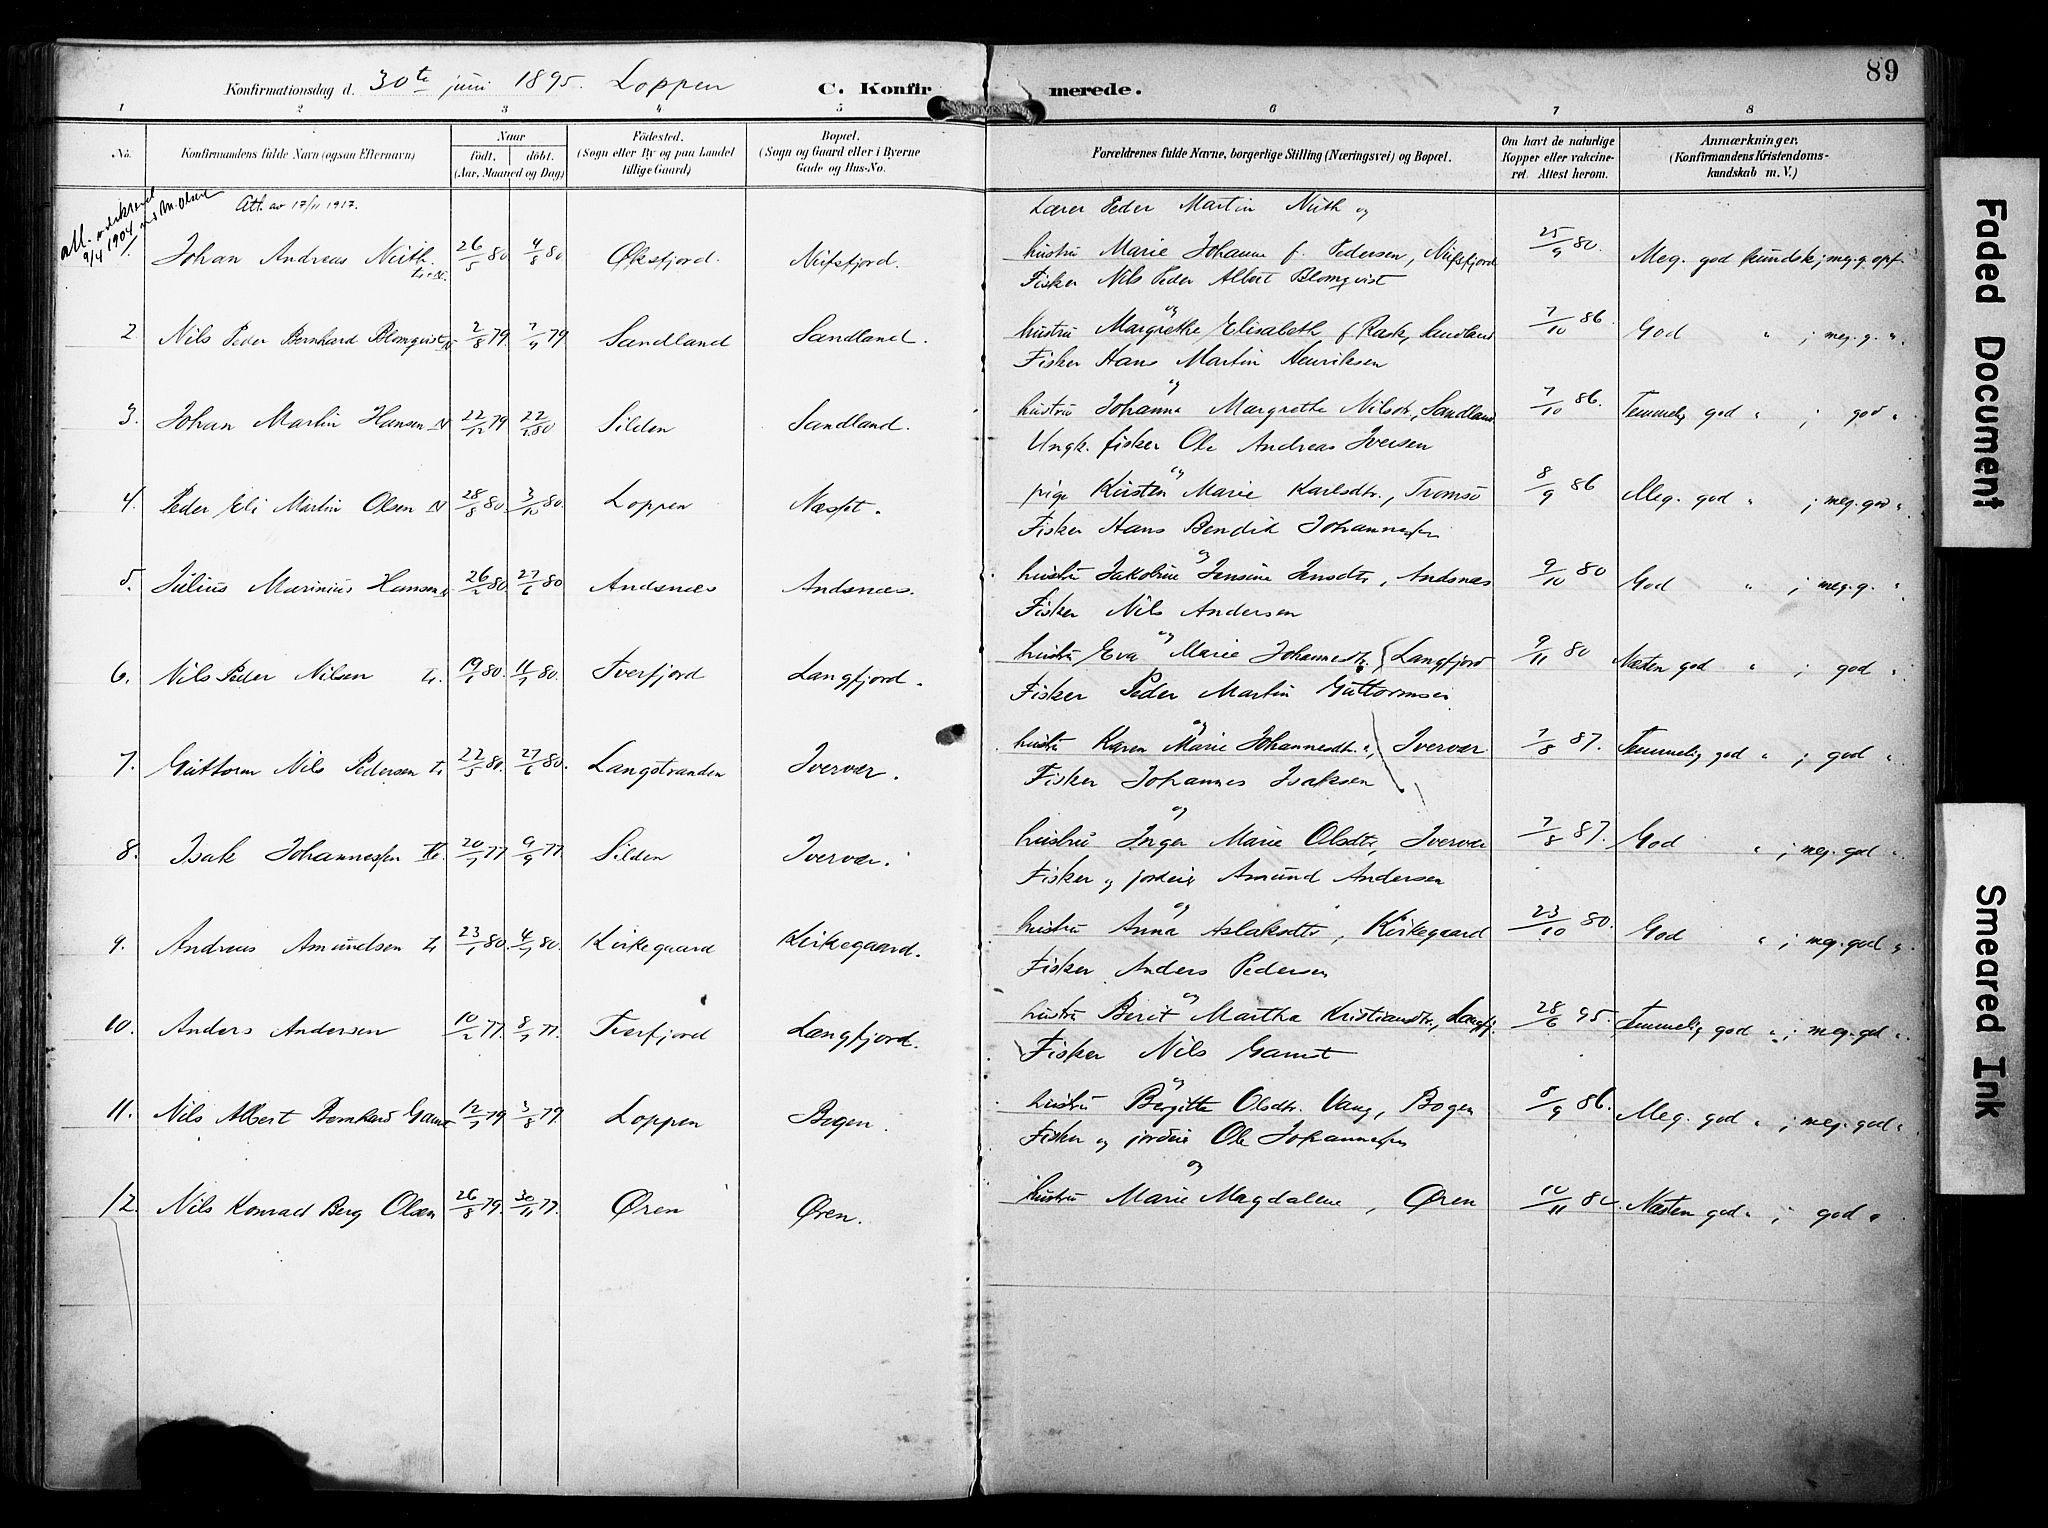 89
Konfirmationsdag d. 30te juni 1895. Loppen C. Konfirmerede.
1 2 3 4 5 6 7 8
No. Konfirmandens fulde Navn (ogsaa Efternavn) Naar født, døbt. (Aar, Maaned og Dag) Fødested. (Sogn eller By og paa Landet tillige Gaard) Bopæl. (Sogn og Gaard eller i Byerne Gade og Hus-No. Forældrenes fulde Navne, borgerlige Stilling (Næringsvei) og Bopæl. Om havt de naturlige Kopper eller vakcineret. Attest herom. Anmærkninger. (Konfirmandens Kristendomskundskab m. V.)
Att. av 17/11 1917.
Lærer Peder Martin Nuth og
Johan Andreas Nuth. 26/5 80 4/8 80 Øksfjord. Nufsfjord. hustru Marie Johanne f. Pedersen, Nufsfjord 25/9 80. Meg. god kundsk; meg. g. opf.
Fisker Nils Peder Albert Blomqvist
og
2. Nils Peder Bernhard Blomqvist N 2/8 79 7/9 79 Sandland Sandland. hustru Margrethe Elisabeth f. Rask, Sandland 7/10 86. God " ; meg. g. ".
Fisker Hans Martin Henriksen
og
3. Johan Martin Hansen N 22/12 79 22/2 80 Silden Sandland. hustru Johanna Margrethe Nilsdr., Sandland 7/10 86. Temmelig god " ; god "
Ungk. fisker Ole Andreas Iversen
og
4. Peder Eli Martin Olsen N 28/8 80. 3/10 80. Loppen Næsset. pige Kirsten Marie Karlsdtr., Tromsö 8/9 86 Meg. god " ; meg. god ".
Fisker Hans Bendik Johannessen
og
5. Julius Marinius Hansen N. 26/2 80. 27/6 80 Andsnæs Andsnæs. hustru Jakobine Jensine Jensdtr, Andsnæs 9/10 80 God " ; meg. g. "
Fisker Nils Andersen
og
6. Nils Peder Nilsen L. 19/1 80. 11/7 80. Tverfjord Langfjord. hustru Eva Marie Johannesdtr, Langfjord 9/11 80 Næsten god " ; god "
Fisker Peder Martin Guttormsen
og
7. Guttorm Nils Pedersen L 22/5 80. 27/6 80. Langstranden Iverver. hustru Karen Marie Johannesdtr. Iverver 7/8 87. Temmelig god " ; god "
Fisker Johannes Isaksen
og
8. Isak Johannessen 20/7 77 9/9 77. Silden Iverver. hustru Inger Marie Olsdtr, Iverver 7/8 87. God " ; meg. god "
Fisker og jordeier Amund Andersen
og
9. Andreas Amundsen L 23/1 80. 4/7 80. Kirkegaard Kirkegaard. hustru Anna Aslaksdtr, Kirkegaard 23/10 80. God " ; meg. god "
Fisker Anders Pedersen
og
10. Anders Andersen 10/2 77. 8/7 77. Tverfjord Langfjord. hustru Berit Martha Kristiandtr., Langfj. 28/6 95. Temmelig god " ; meg. god ".
Fisker Nils Gamst
og
11. Nils Albert Bernhard Gamst 12/7 79 3/8 79. Loppen Bogen. hustru Bergitte Olsdtr. Vang, Bogen 8/9 86. Meg. god " ; meg. god "
Fisker og jordeier Ole Johannessen
og
12. Nils Konrad Berg Olsen 26/8 79. 30/11 77. Øren Øren. hustru Marie Magdalene, Øren Næsten god " ; god "
Faded Document
Smeared Ink